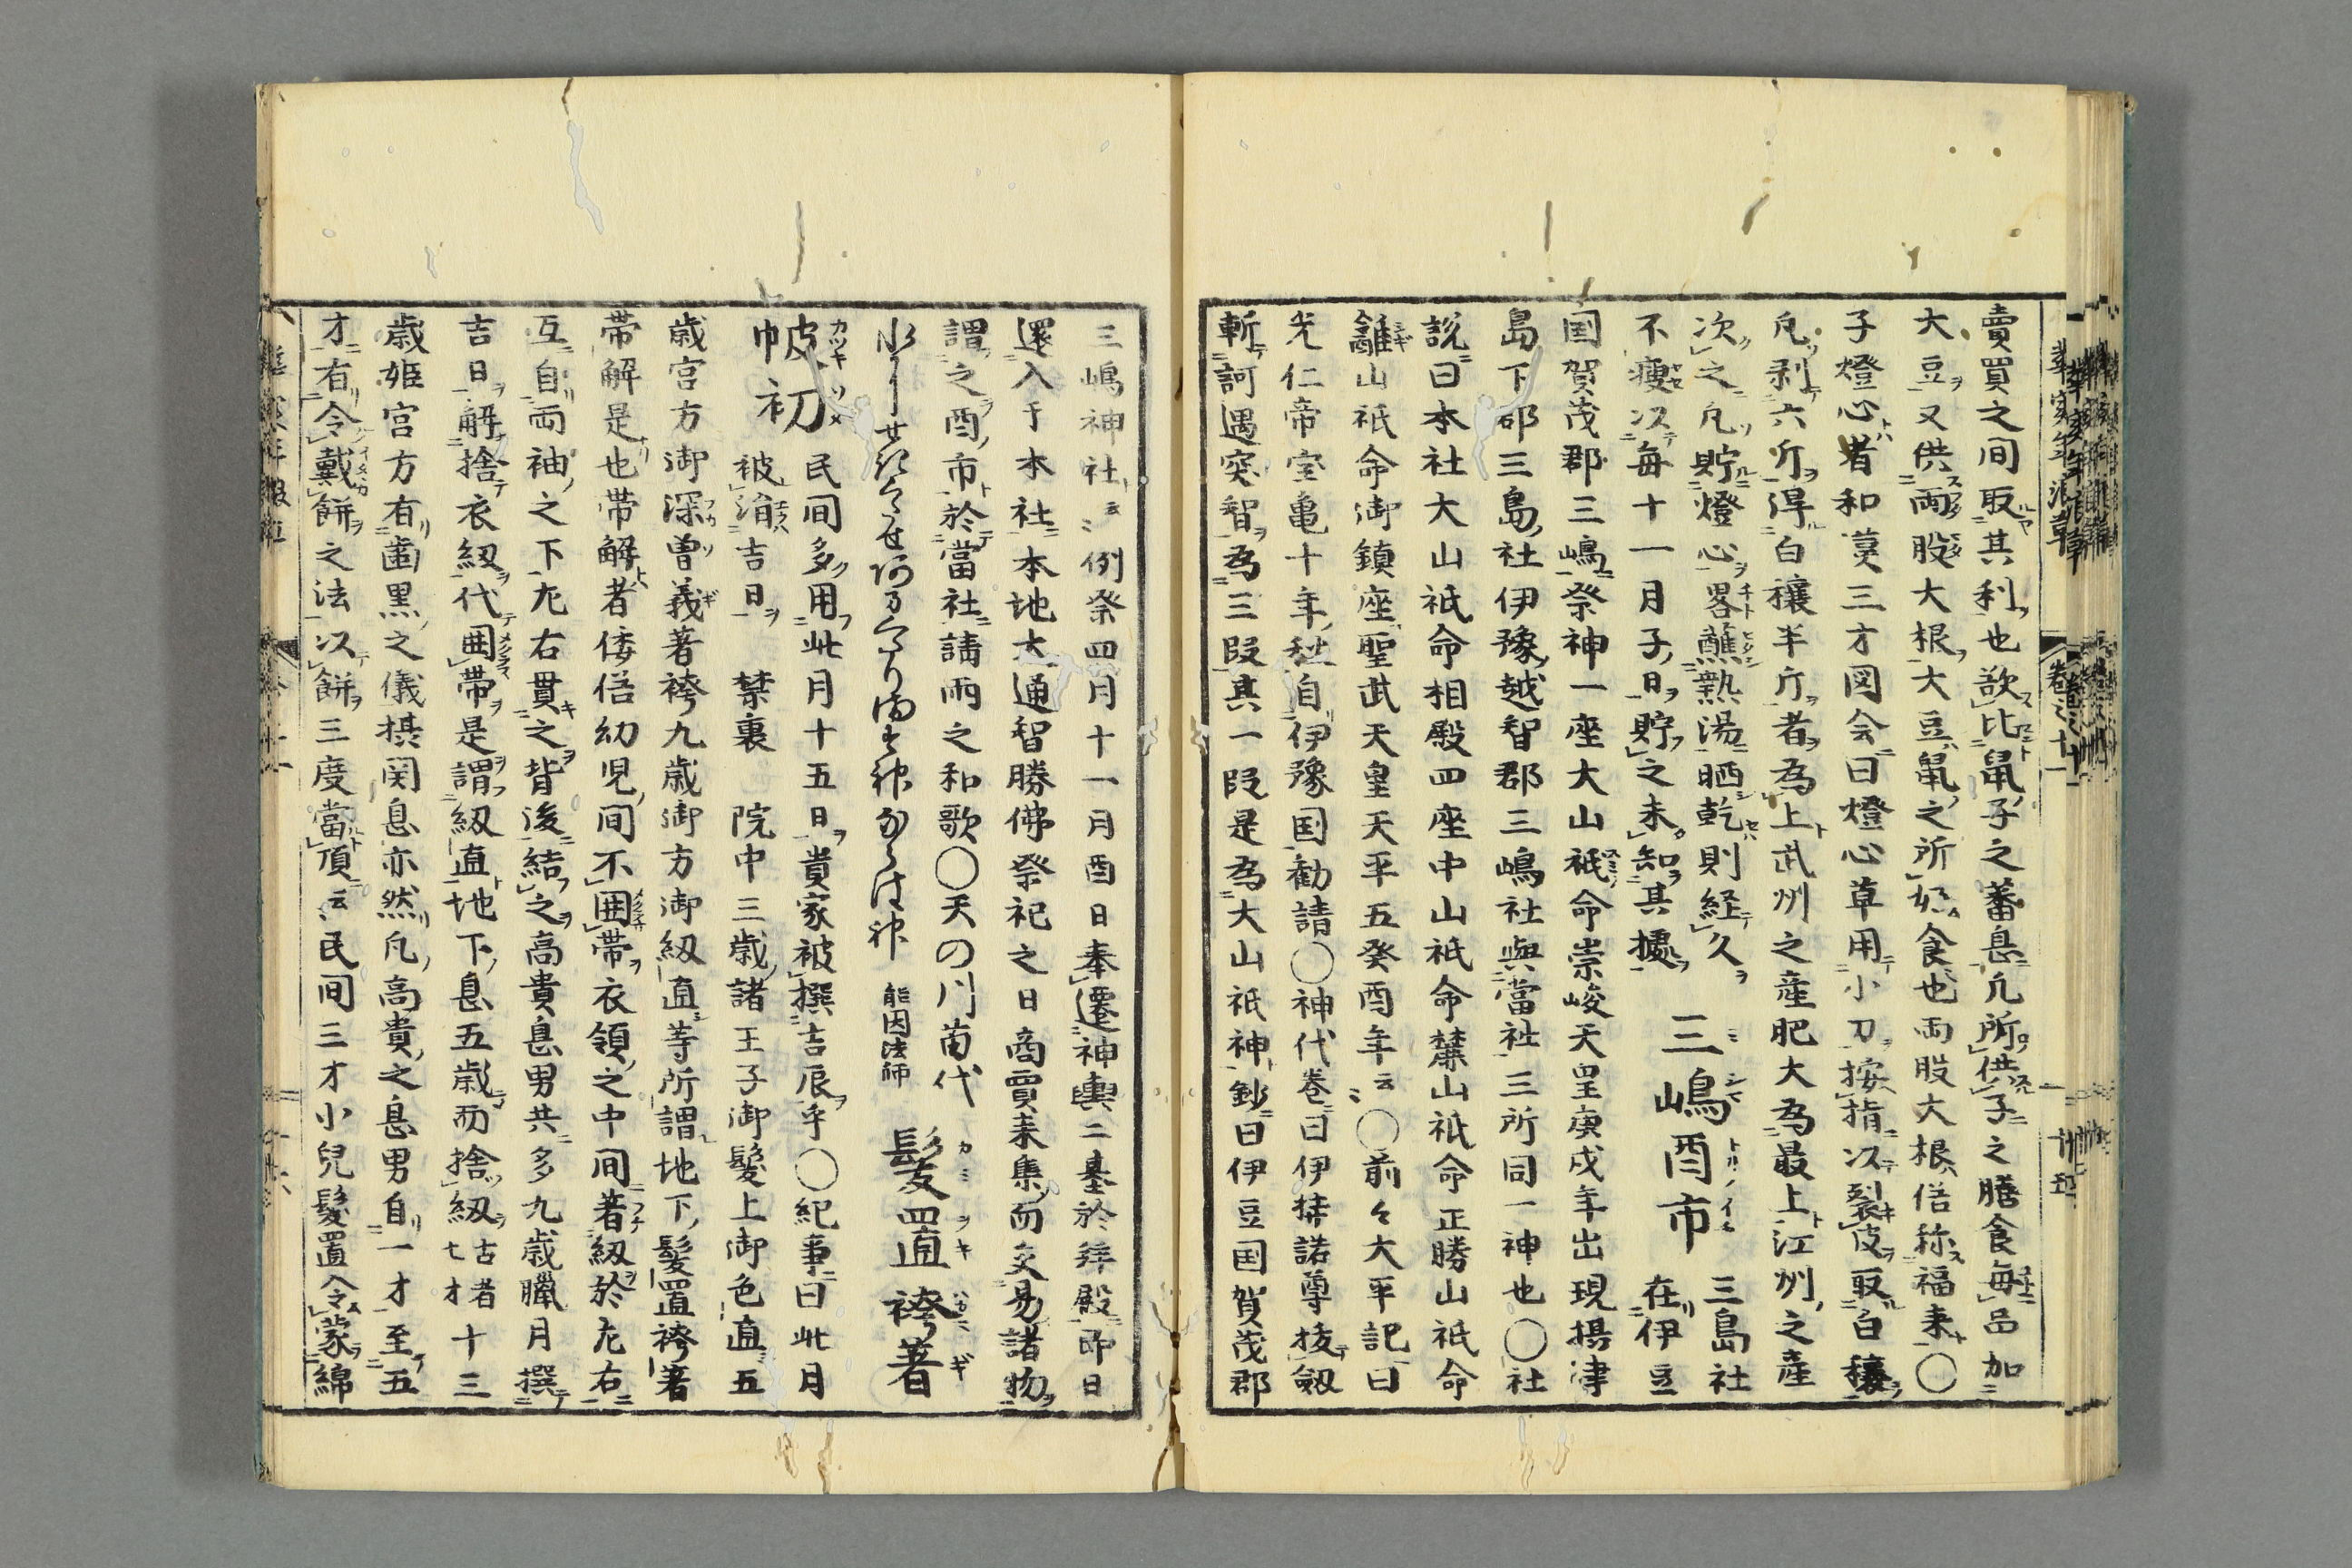 賣買之間取其利也欲比鼠子之蕃息凡所供子之膳食毎品加
大豆又供両股大根大豆鼠之所好食也両股大根俗称福来○
子燈心者和漢三才図会曰燈心草用小刀按指以裂皮取白穰
凡剥六斤得白穰半斤者為上武州之産肥大為最上江州之産
次之凡貯燈心畧蘸熱湯晒乾則経久
不痩以毎十一月子日貯之未知其據
三嶋酉市
三島社
在伊豆
国賀茂郡三嶋祭神一座大山祇命崇峻天皇庚戌年出現摂津
島下郡三島社伊豫越智郡三嶋社與當社三所同一神也○社
説曰本社大山祇命相殿四座中山祇命麓山祇命正勝山祇命
䨄山祇命御鎮座聖武天皇天平五癸酉年云〻○前々大平記曰
光仁帝宝亀十年秋自伊豫国勧請○神代巻曰伊弉諾尊抜劔
斬訶遇突智為三段其一段是為大山祇神鈔曰伊豆国賀茂郡
三嶋神社云〻例祭四月十一月酉日奉遷神輿二基於拜殿即日
還入于本社本地大通智勝佛祭祀之日商賈来集而交易諸物
謂之酉市於當社請雨之和歌○天の川苗代
水に
能因法師
髪置袴著
帔初
民間多用此月十五日貴家被撰吉辰乎○紀事曰此月
被涓吉日 禁裏 院中三歳諸王子御髪上御色直五
歳宮方御深曽義著袴九歳御方御紐直等所謂地下髪置袴著
帯解是也帯解者倭俗幼児間不囲帯衣領之中間著紐於左右
互自両袖之下左右貫之背後結之高貴息男共多九歳臘月撰
吉日解捨衣紐代囲帯是謂紐直地下息五歳而捨紐古者七才十三
歳姫宮方有歯黒之儀摂関息亦然凡高貴之息男自一才至五
才有令戴餅之法以餅三度當頂云〻民間三才小兒髪置令蒙綿